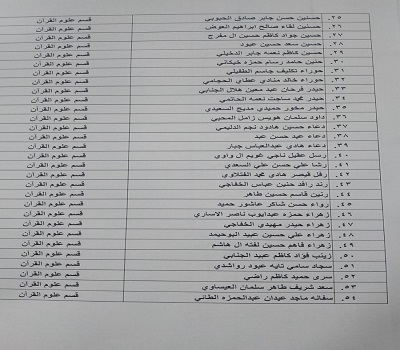 ٢٥. حسنين حسن جابر صادق الحبوبي قسم علوم القرآن
٢٦. حسنين لقاء صالح ابراهيم العوض قسم علوم القرآن
٢٧. حسين جواد كاظم حسين ال مفرج قسم علوم القرآن
٢٨. حسين سعد حسين عبود قسم علوم القرآن
٢٩. حسين كاظم نعمه جابر الدخيلي قسم علوم القرآن
٣٠. حنين حامد رسام حمزه خيكاني قسم علوم القرآن
٣١. حوراء تكليف جاسم الطفيلي قسم علوم القرآن
٣٢. حوراء خالد منادي عطاي الحجامي قسم علوم القرآن
٣٣. حيدر فرحان عبد معين هلال الجنابي قسم علوم القرآن
٣٤. حيدر محمد ساجت نعمه الحاتمي قسم علوم القرآن
٣٥. حيدر محور حميدي مديح السعيدي قسم علوم القرآن
٣٦. داود سلمان هويس زامل المحيي قسم علوم القرآن
٣٧. دعاء حسين هادود نجم الدليمي قسم علوم القرآن
٣٨. دعاء عبد حسن عبد قسم علوم القرآن
٣٩. دعاء هادي عبدالعباس جبار قسم علوم القرآن
٤٠. رسل عقيل ناجي غويم ال واوي قسم علوم القرآن
٤١. رشا علي حسن علي السعدي قسم علوم القرآن
٤٢. رفل قيصر هادي محمد الفتلاوي قسم علوم القرآن
٤٣. رند رافد حنين عباس الخفاجي قسم علوم القرآن
٤٤. رنين قاسم حسين طاهر قسم علوم القرآن
٤٥. رواء حسن شاكر عاشور حميد قسم علوم القرآن
٤٦. زهراء حمزه عبدايوب ناصر الاساري قسم علوم القرآن
٤٧. زهراء حيدر مهيدي الخفاجي قسم علوم القرآن
٤٨. زهراء علي حسين عبيد البوحيمد قسم علوم القرآن
٤٩. زهراء فاهم حسين لفته ال هاشم قسم علوم القرآن
٥٠. زينب فؤاد كاظم عبيد الجنابي قسم علوم القرآن
٥١. سجاد سامي تايه عبود رواشدي قسم علوم القرآن
٥٢. سرى حميد كاظم راضي قسم علوم القرآن
٥٣. سعد شريف طاهر سلمان العيساوي قسم علوم القرآن
٥٤. سفانه ماجد عيدان عبدالحمزه الطائي قسم علوم القرآن